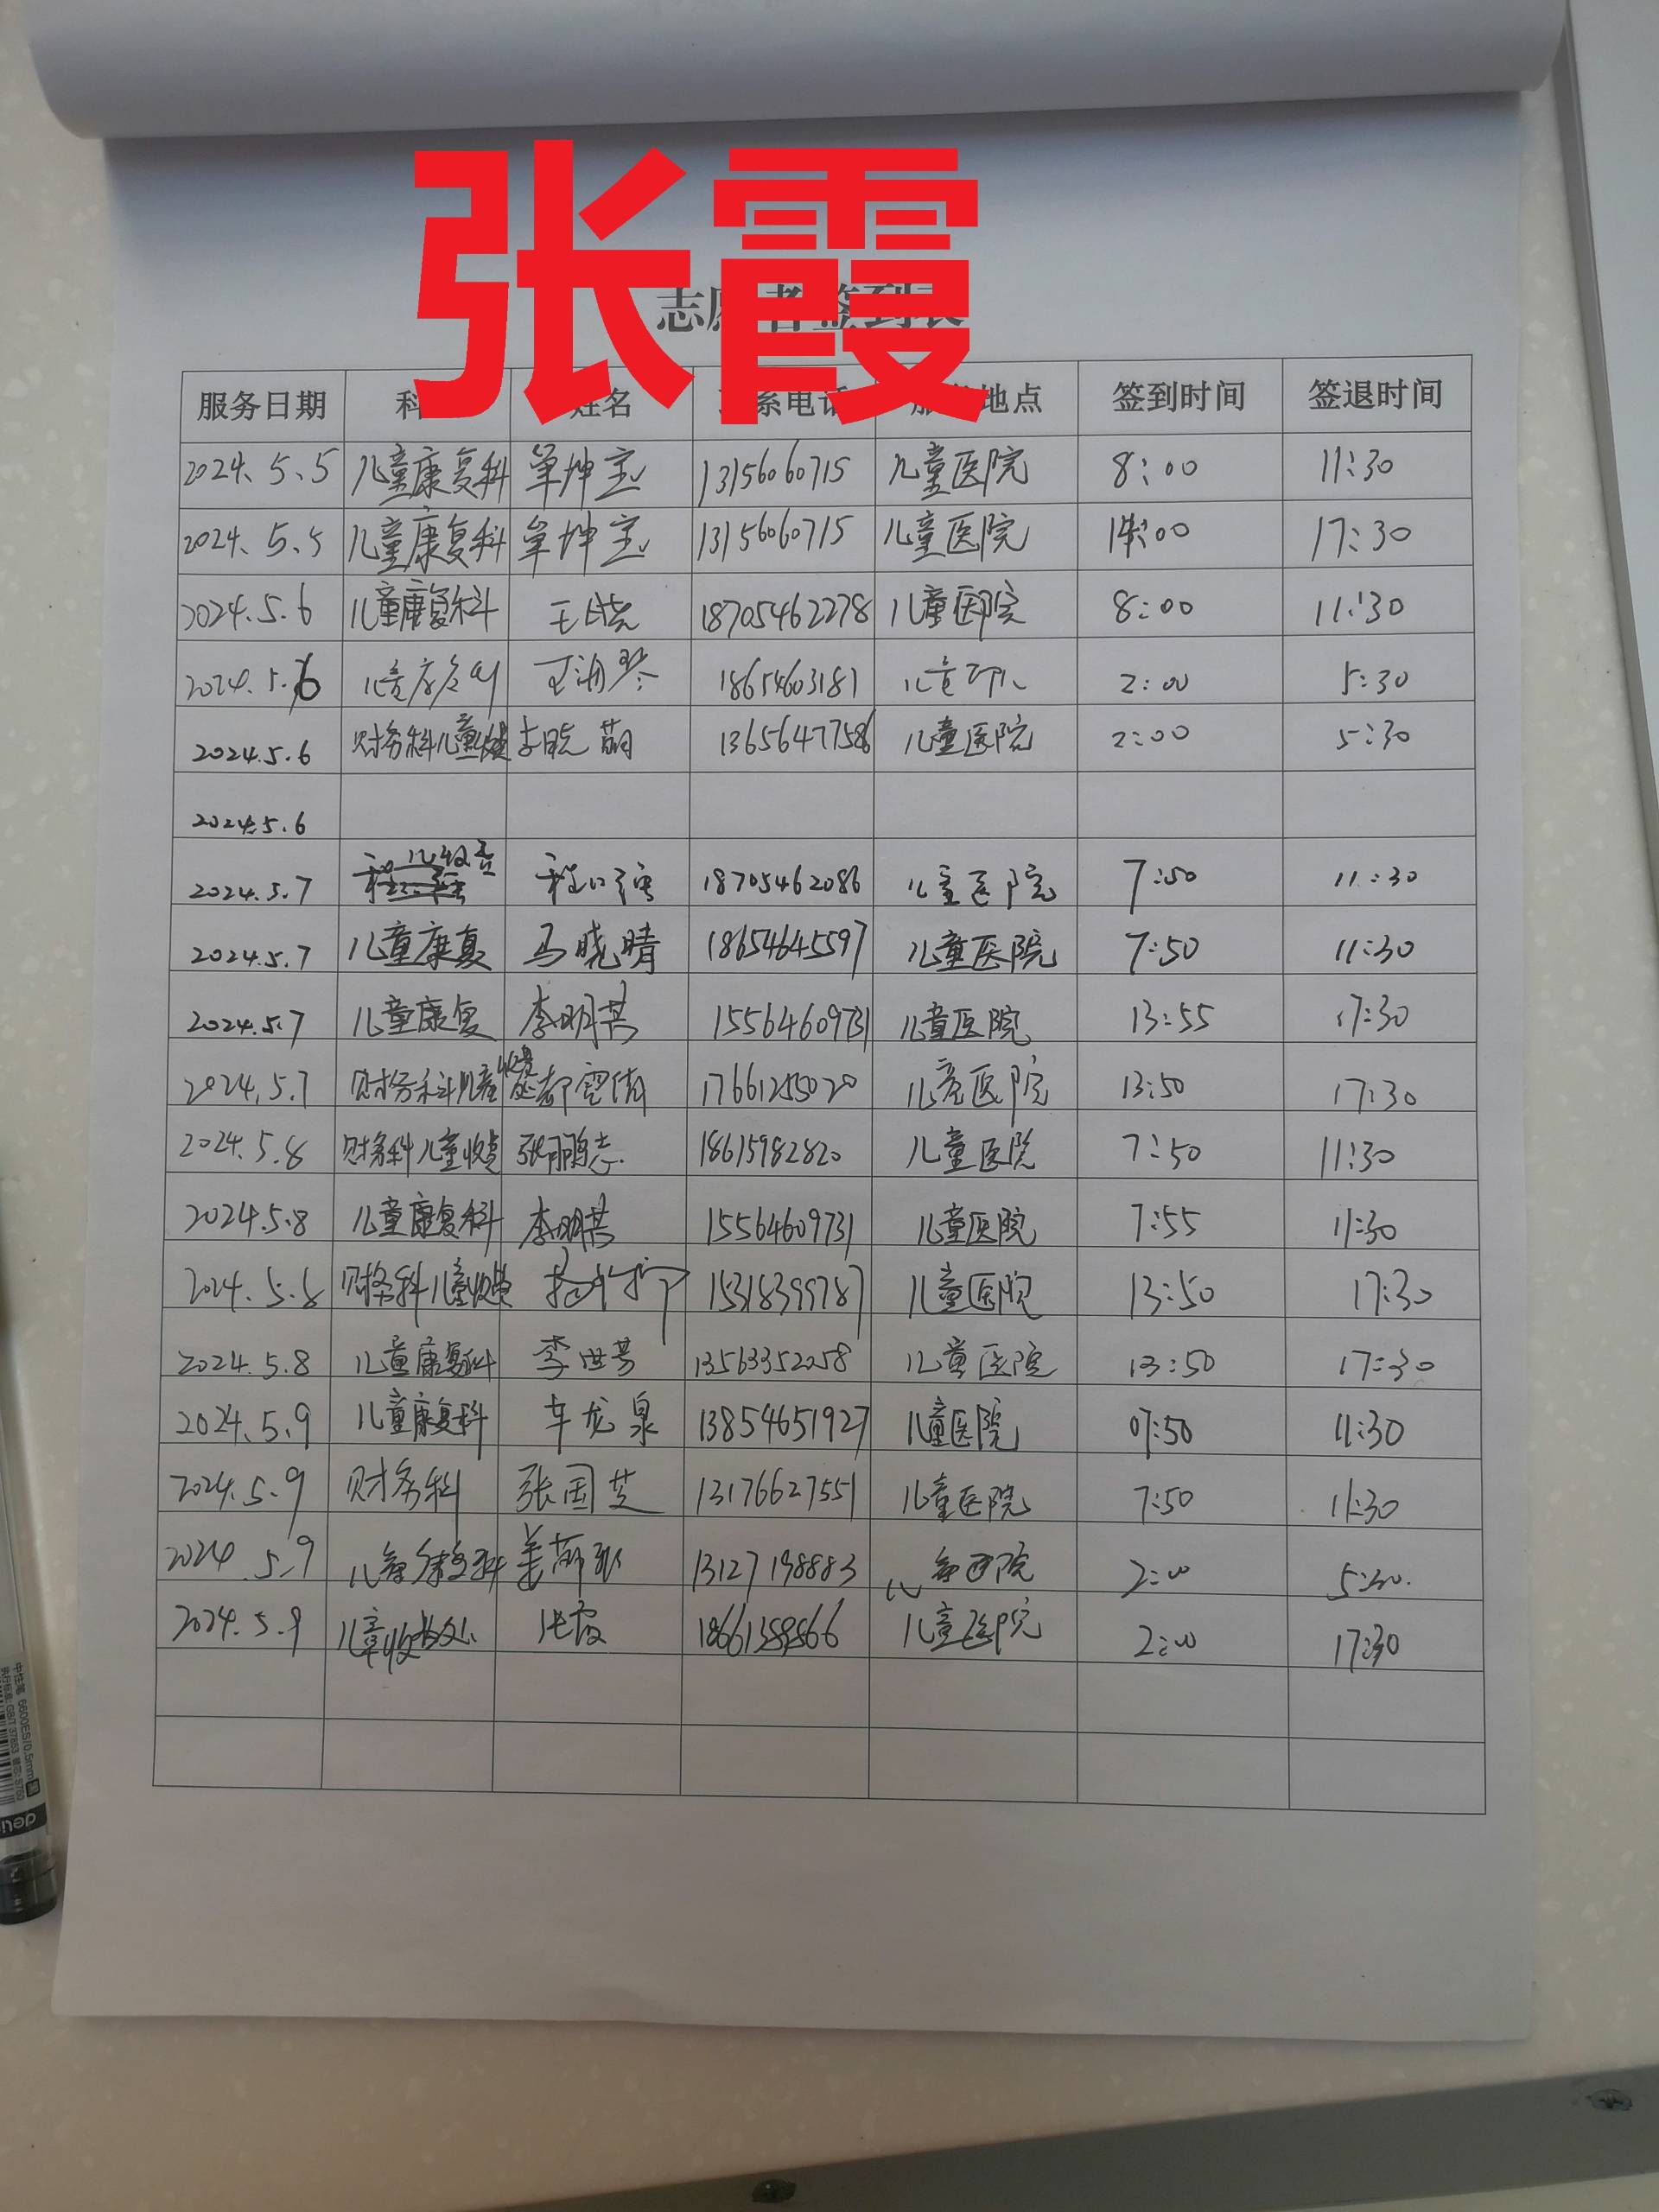 张霞
志愿者签到表
服务日期 科 姓名 联系电话 服务地点 签到时间 签退时间
2024.5.5 儿童康复科 单坤宝 13156060715 儿童医院 8:00 11:30
2024.5.5 儿童康复科 单坤宝 13156060715 儿童医院 14:00 17:30
2024.5.6 儿童康复科 王晓 18705462278 儿童医院 8:00 11:30
2024.5.6 儿童康复科 王海琴 18654603181 儿童 2:00 5:30
2024.5.6 财务科儿童收费 李晓萌 13656477586 儿童医院 2:00 5:30
2024.5.6
2024.5.7 儿收费 18705462086 儿童医院 7:50 11:30
2024.5.7 儿童康复 马晓晴 18654645597 儿童医院 7:50 11:30
2024.5.7 儿童康复 李明芸 15564609731 儿童医院 13:55 17:30
2024.5.7 财务科儿童收费处 17661255020 儿童医院 13:50 17:30
2024.5.8 财务科儿童收费 张鹏志 18615982820 儿童医院 7:50 11:30
2024.5.8 儿童康复科 李明芸 15564609731 儿童医院 7:55 11:30
2024.5.8 财务科儿童收费 15318399787 儿童医院 13:50 17:30
2024.5.8 儿童康复科 李世芳 13563352058 儿童医院 13:50 17:30
2024.5.9 儿童康复科 车龙泉 13854651927 儿童医院 07:50 11:30
2024.5.9 财务科 张国芝 13176627551 儿童医院 7:50 11:30
2024.5.9 儿童康复科 13127198883 儿童医院 2:00 5:30.
2024.5.9 儿童收费处 张霞 18661389866 儿童医院 2:00 17:30
中性笔 6600ES/0.5mm
deli